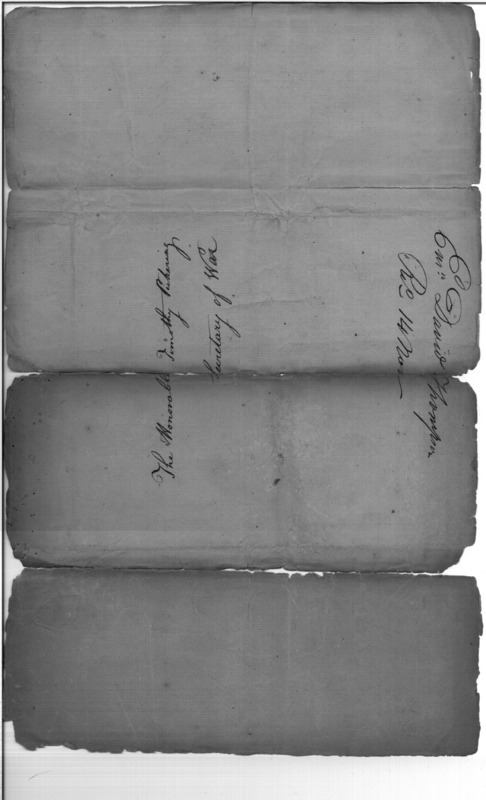 The Honorable Timothy Pickering
Secretary of War
David Thompson
Rec 14 Nov